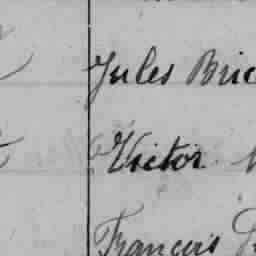 Jules Bric
Victor
François